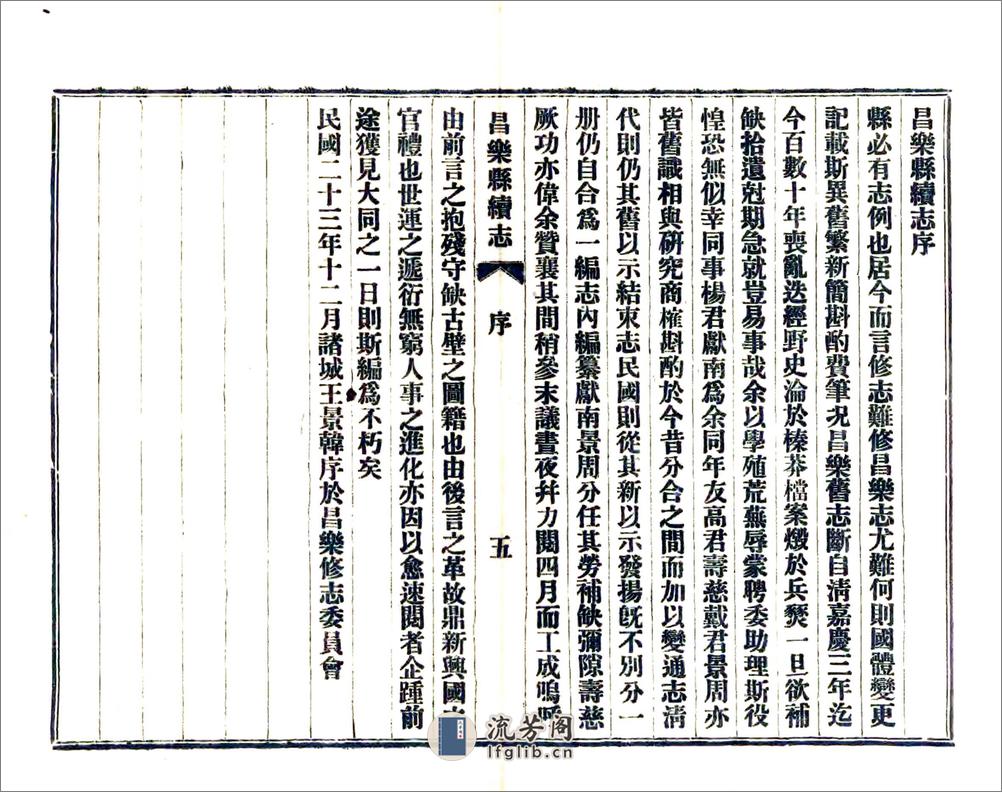 昌樂縣續志序
縣必有志例也居今而言修志難修昌樂志尤難何則國體變更
記載斯異舊繁新簡斟酌費筆况昌樂舊志斷自清嘉慶三年迄
今百數十年喪亂迭經野史淪於榛莽檔案燬於兵燹一旦欲補
缺拾遺尅期急就豈易事哉余以學殖荒蕪辱蒙聘委助理斯役
惶恐無似幸同事楊君獻南爲余同年友高君壽慈戴君景周亦
皆舊識相與硏究商榷斟酌於今昔分合之間而加以變通志清
代則仍其舊以示結束志民國則從其新以示發揚旣不別分一
册仍自合爲一編志內編纂獻南景周分任其勞補缺彌隙壽慈
厥功亦偉余贊襄其間稍參末議晝夜幷力閱四月而工成嗚
昌樂縣續志
序
五
由前言之抱殘守缺古壁之圖籍也由後言之革故鼎新興國
官禮也世運之遞衍無窮人事之進化亦因以愈速閱者企踵前
途獲見大同之一日則斯編爲不朽矣
民國二十三年十二月諸城王景韓序於昌樂修志委員會
流芳阁
lfglib.cn